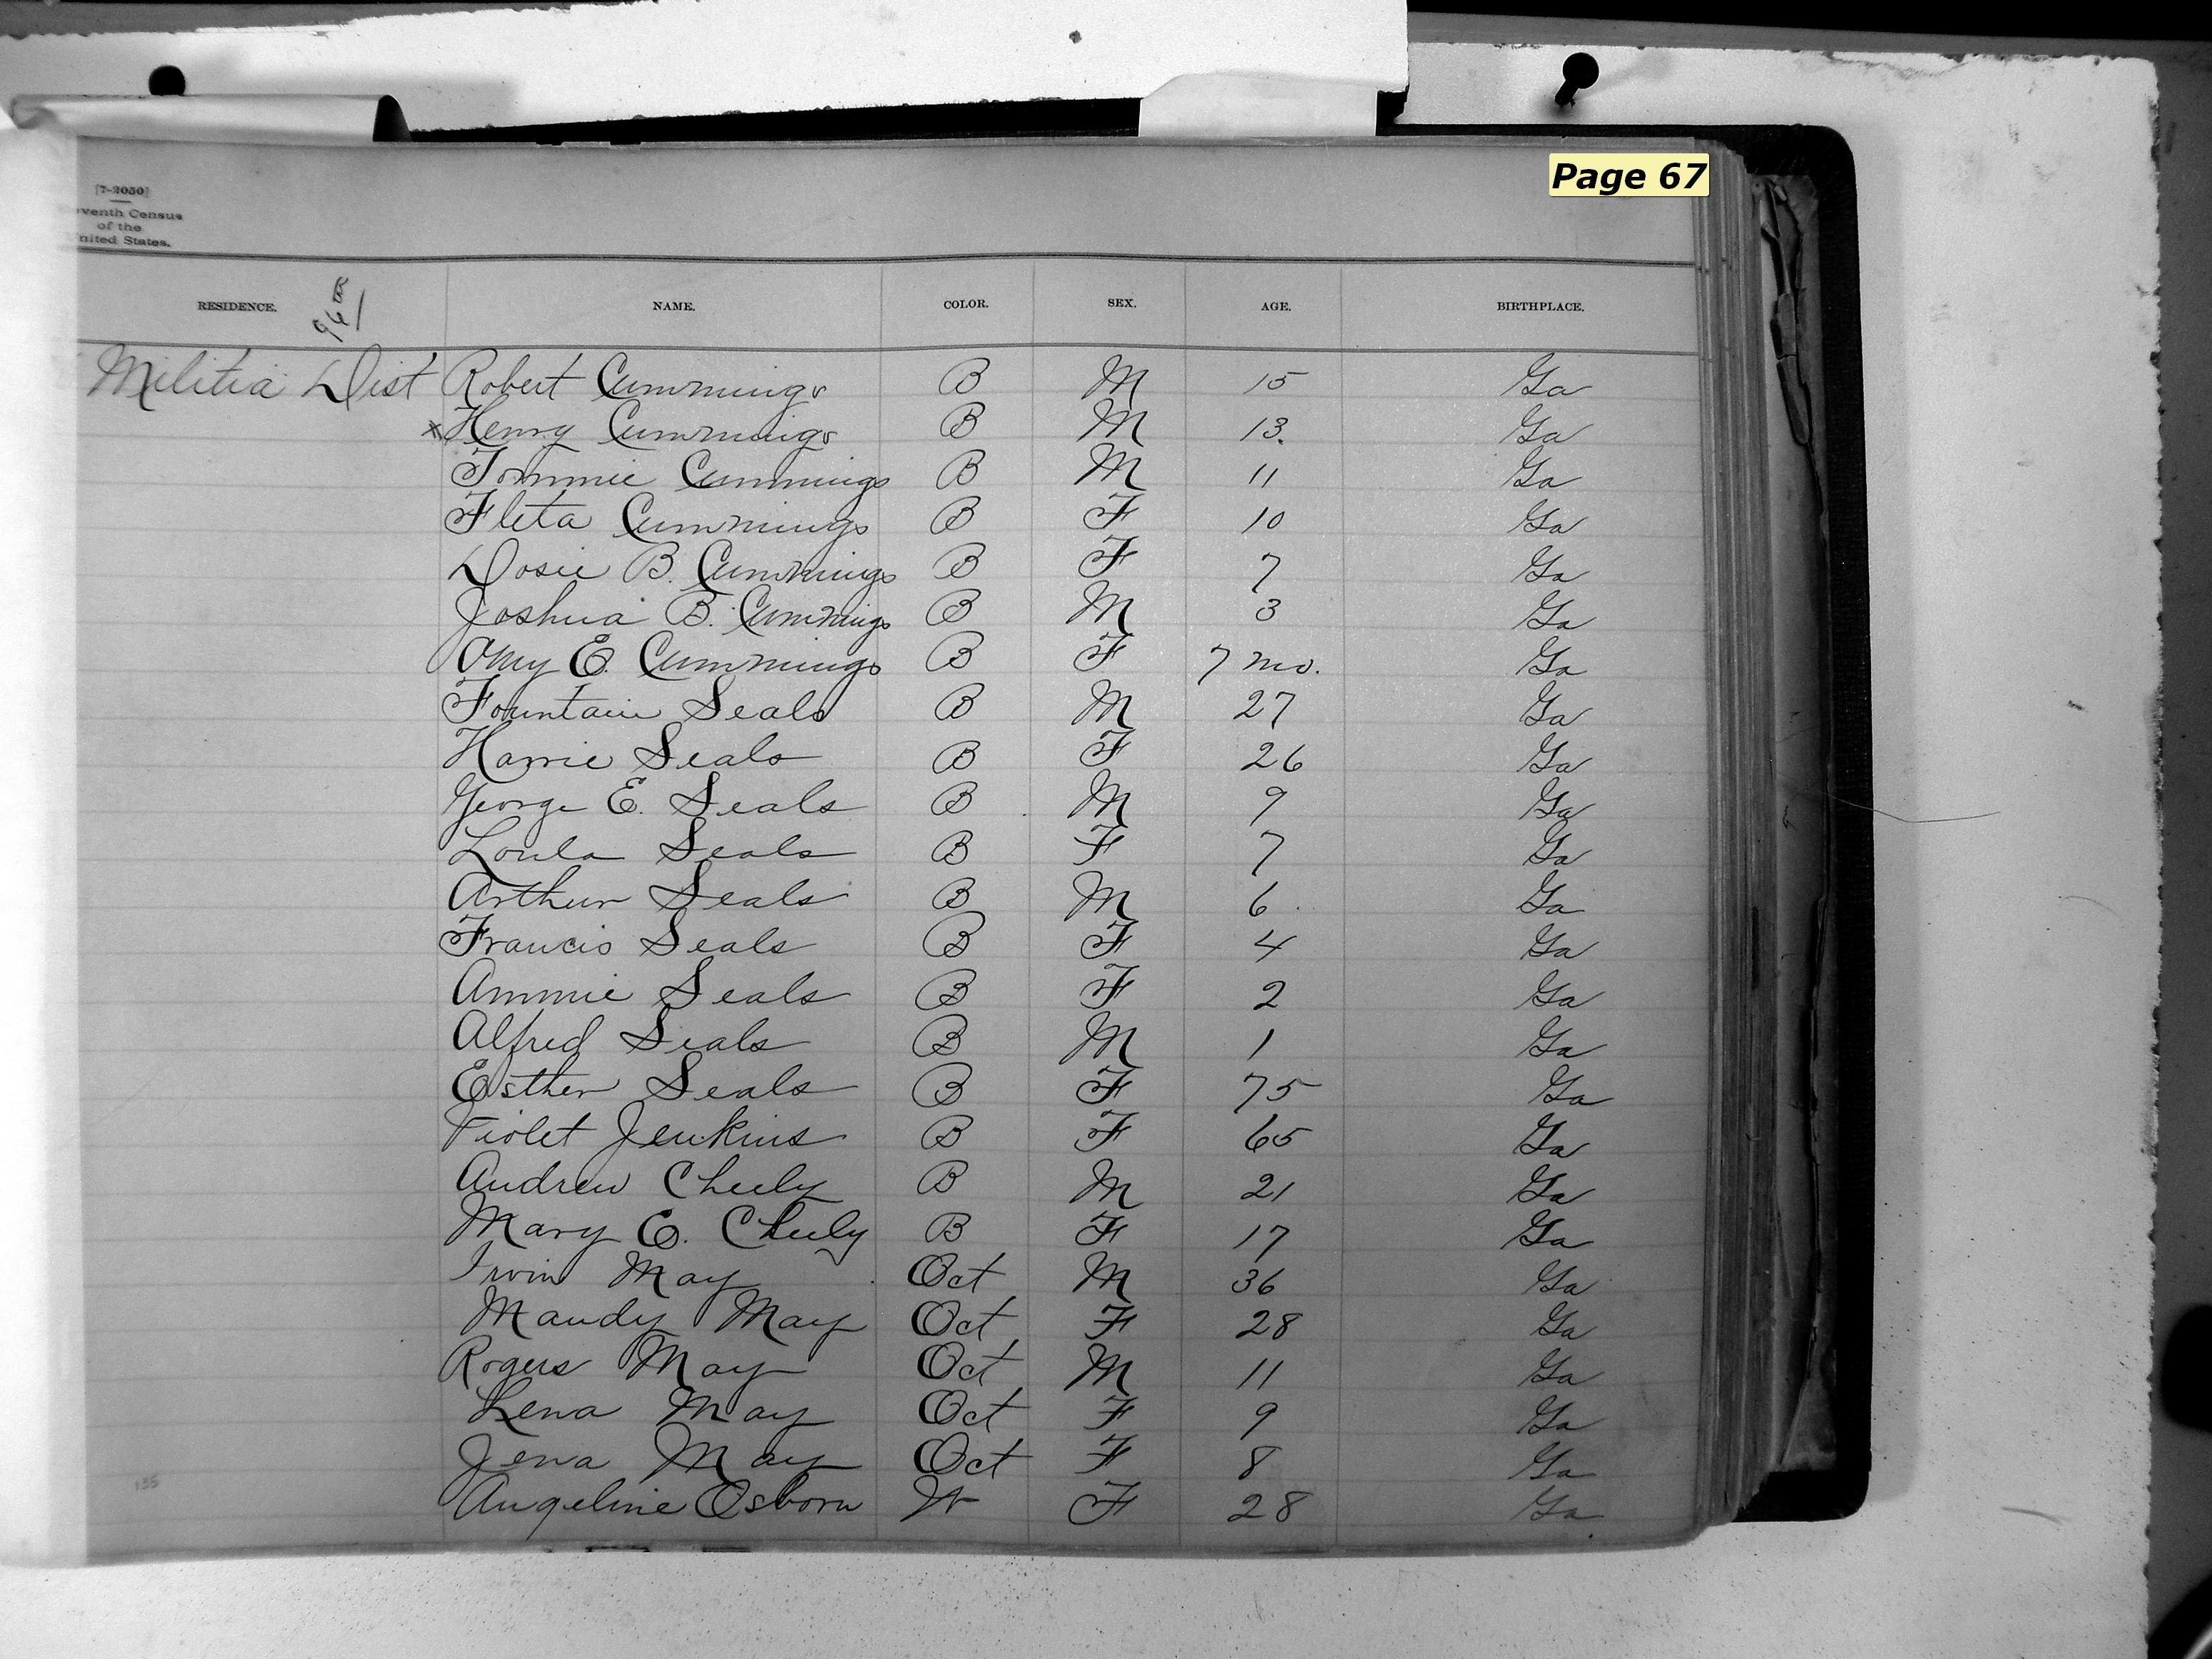 Page 67
[7-2050]
eventh Census
of the
nited States.
RESIDENCE. NAME. COLOR. SEX. AGE. BIRTHPLACE.
Militia Dist Robert Cummings B M 15 Ga
x Henry Cummings B M 13. Ga
Tommie Cummings B M 11 Ga
Fleta Cummings B F 10 Ga
Dosie B. Cummings B F 7 Ga
Joshua B. Cummings B M 3 Ga
Amy E. Cummings B F 7 mo. Ga
Fountain Seals B M 27 Ga
Seals B F 26 Ga
George E. Seals B M 9 Ga
Loula Seals B F 7 Ga
Arthur Seals B M 6 Ga
Francis Seals B F 4 Ga
Ammie Seals B F 2 Ga
Alfred Seals B M 1 Ga
Esther Seals B F 75 Ga
Violet Jenkins B F 65 Ga
Andrew Cheely B M 21 Ga
Mary E. Cheely B F 17 Ga
Irvin May Oct M 36 Ga
Mandy May Oct F 28 Ga
Rogers May Oct M 11 Ga
Lena May Oct F 9 Ga
Jena May Oct F 8 Ga
Angeline Osborn W F 28 Ga
135